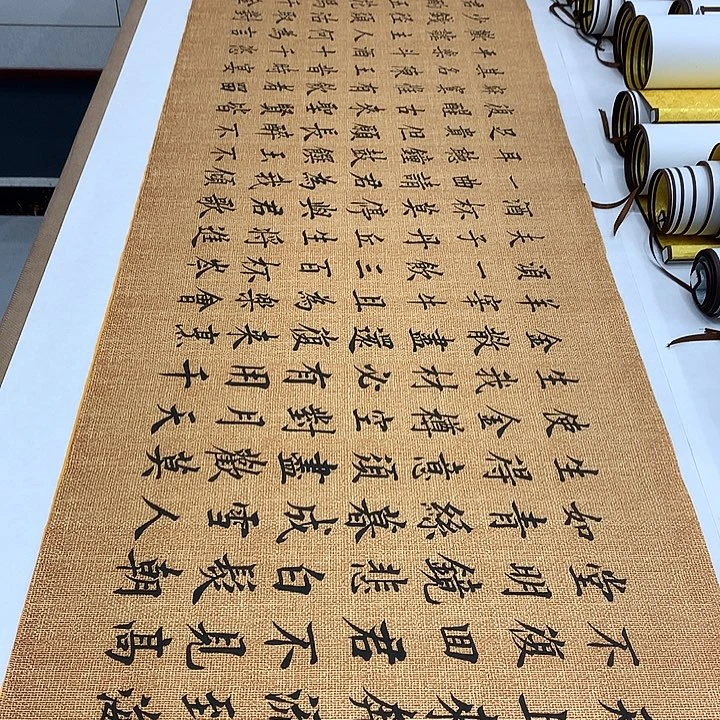 天上來奔流至海
不復回君不見高
堂明鏡悲白髮朝
如青絲暮成雪人
生得意須盡歡莫
使金樽空對月天
生我材必有用千
金散盡還復來烹
羊宰牛且為樂會
須一飲三百杯岑
夫子丹丘生將進
酒杯莫停與君歌
一曲請君為我傾
耳聽鐘鼓饌玉不
足貴但願長醉不
復醒古來聖賢皆
寂寞惟有飲者留
其名陳王昔時宴
平樂斗酒十千恣
歡謔主人何為言
少錢徑須沽取對